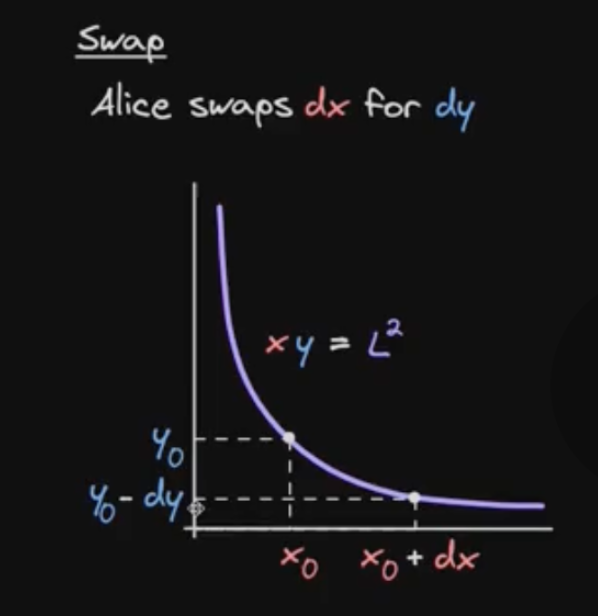 Swap
Alice swaps dx for dy
xy = L²
y₀
y₀ - dy
x₀ x₀ + dx